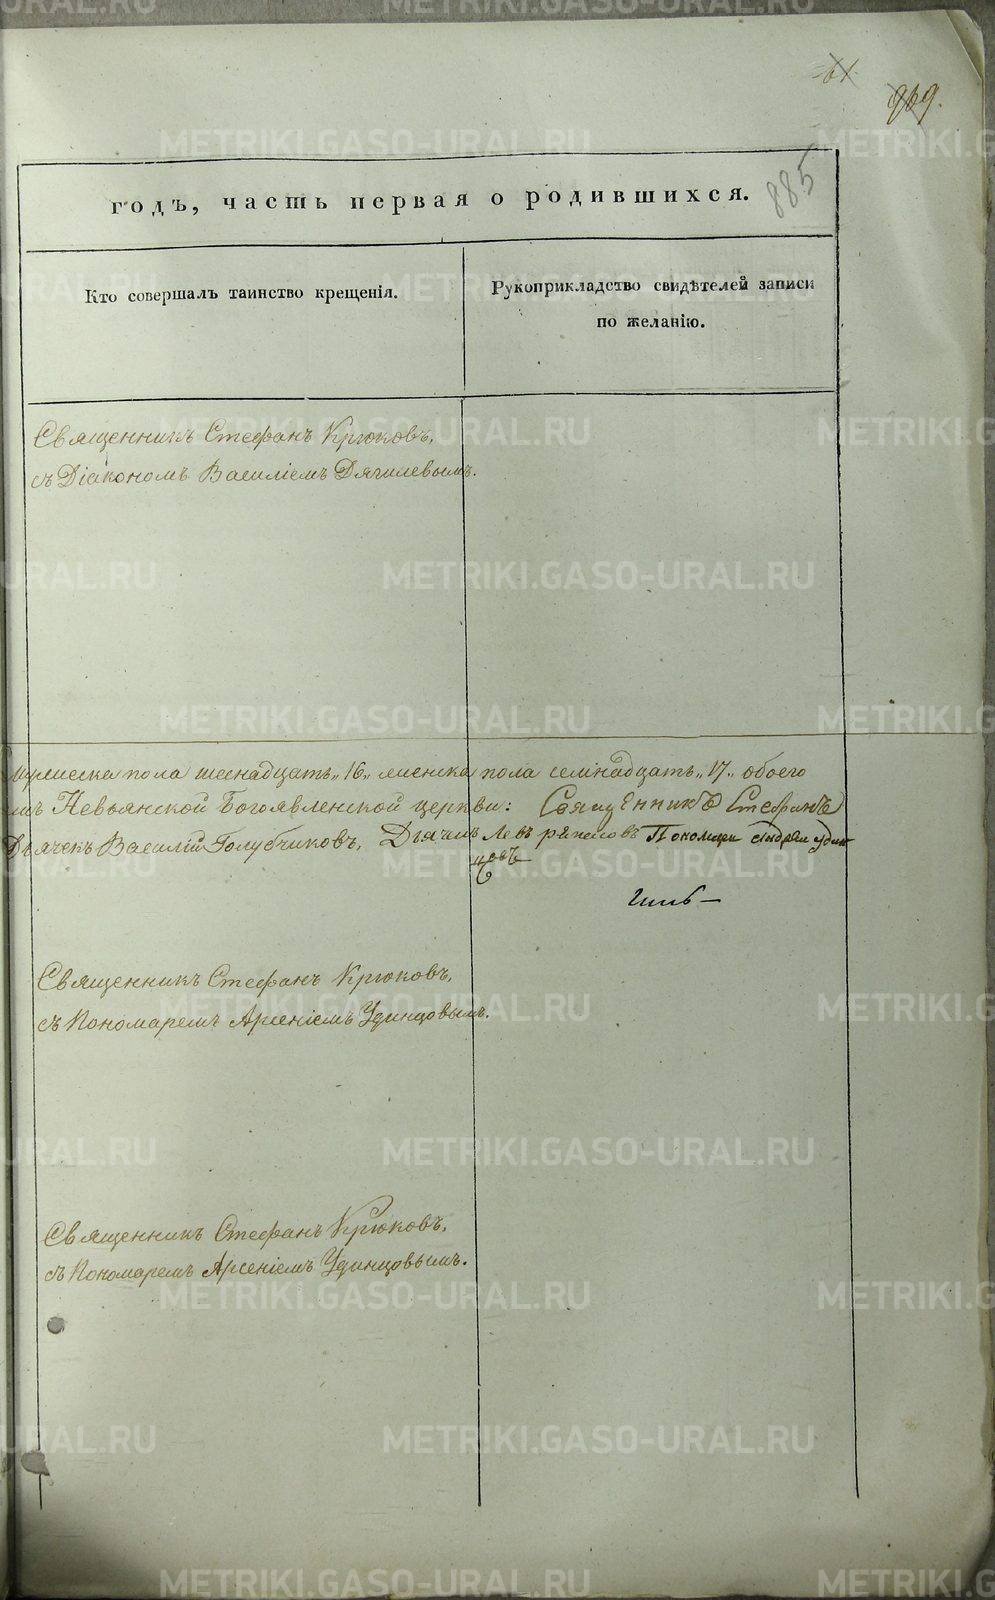 61
969.
885
годъ, часть первая о родившихся.
Кто совершалъ таинство крещенія.
Рукоприкладство свидѣтелей записи
по желанію.
Священникъ Стефанъ Крюковъ,
съ Діакономъ Василіемъ Дягилевымъ.
мужеска пола шеснадцать „16„ женска пола семнадцать „17„ обоего
Невьянской Богоявленской церкви: Священникъ Стефанъ
Дьячекъ Василій Голубчиковъ, Дьячекъ Левъ Пономарь Андрей Удин
цовъ
Священникъ Стефанъ Крюковъ,
съ Пономаремъ Арсеніемъ Удинцовымъ.
Священникъ Стефанъ Крюковъ,
съ Пономаремъ Арсеніемъ Удинцовымъ.
METRIKI.GASO-URAL.RU